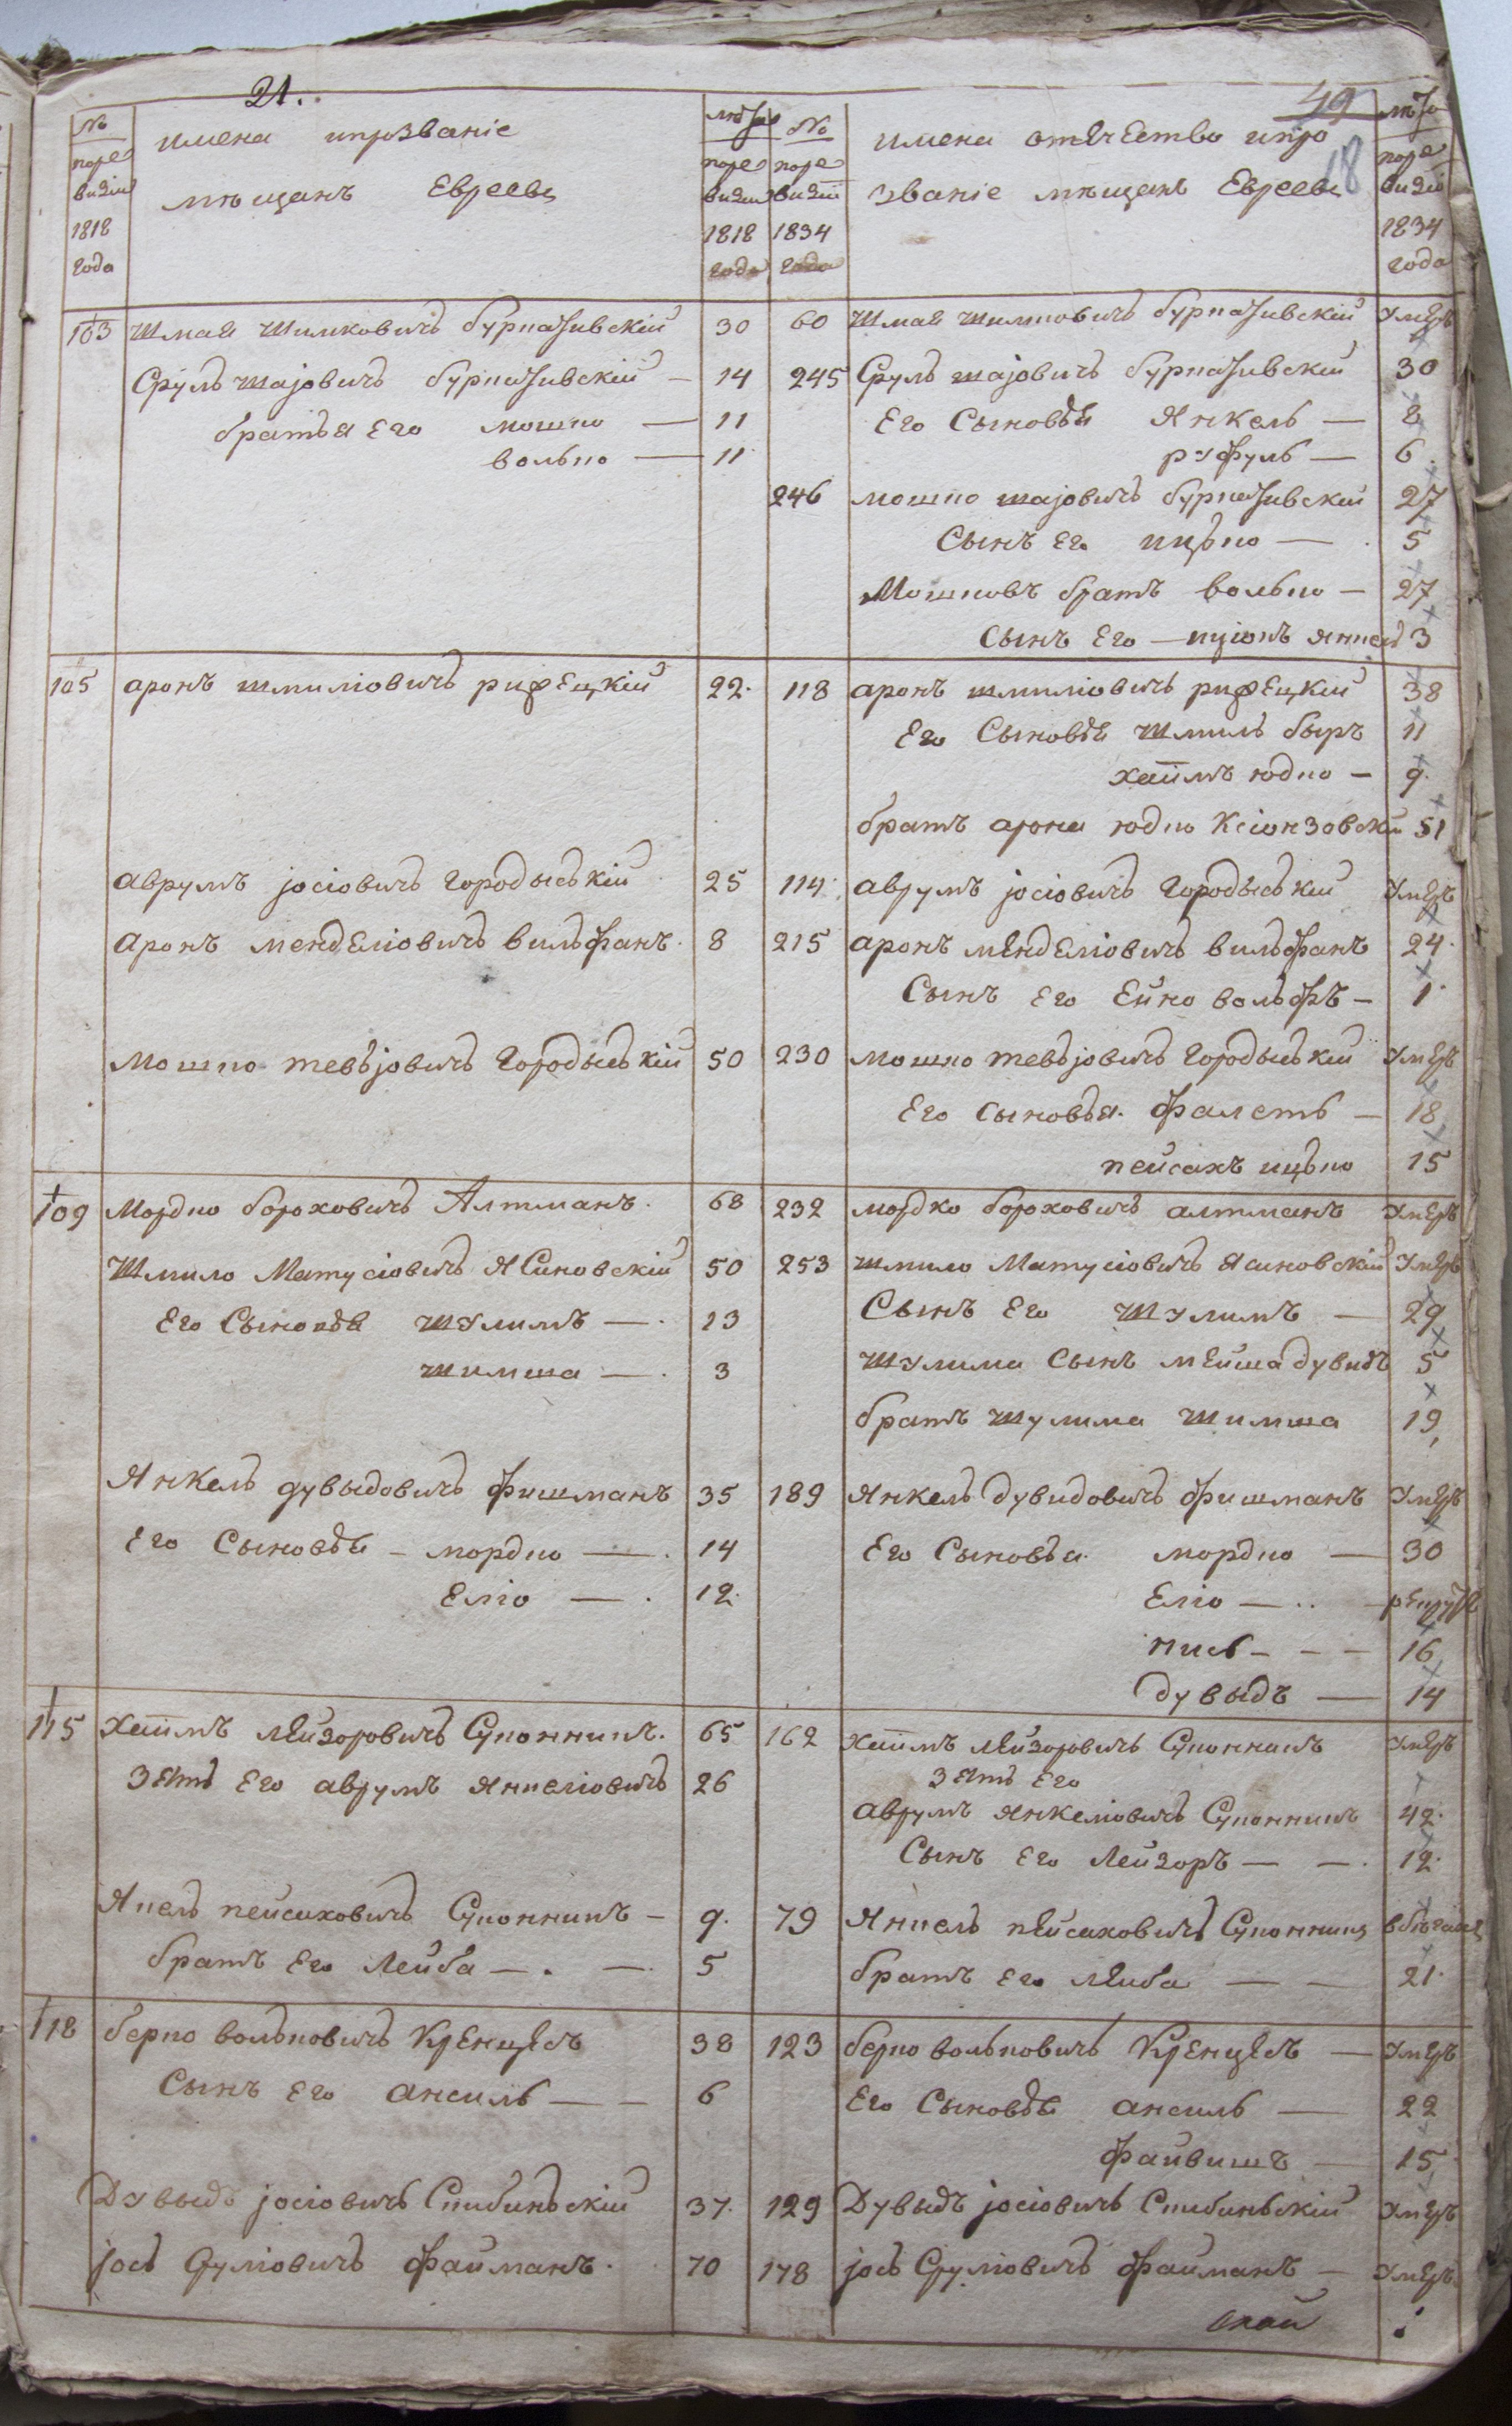 21.
49
18
№ по ревизіи 1818 года
имена и прозваніе
мѣщанъ Евреевъ
лѣта по ревизіи 1818 года
№ по ревизіи 1834 года
имена отечество и про
званіе мѣщанъ Евреевъ
лѣта по ревизіи 1834 года
103 Шмая Шимковичъ 30 60 Шмая Умеръ
Сруль шаjовичъ — 14 245 Сруль шаjовичъ 30
братья Его мошко — 11 Его Сыновья Янкель — 8
волько — 11 руфуль — 6
246 мошко шаjовичъ 27
Сынъ Его ицько — 5
Мошковъ братъ волько — 27
Сынъ Его — янкель 3
105 аронъ шмиліовичъ рифецкій 22. 118 аронъ шмиліовичъ рифецкій 38
Его Сыновья Шмиль быръ 11
хаїимъ юдко — 9.
братъ арона юдко Ксіонзовскій 51
аврумъ jосіовичъ городыській 25 114. аврумъ jосіовичъ городыській Умеръ
аронъ менделіовичъ вильфанъ. 8 215 аронъ менделіовичъ вильфанъ 24.
Сынъ Его Ейно вольфъ — 1.
Мошко тевьjовичъ городыській 50 230 мошко тевьjовичъ городыській Умеръ
Его сыновья. — 18
пейсахъ ицько 15
109 Мордко бороховичъ Алтманъ. 68 232 мордко бороховичъ алтманъ Умеръ
Шмило Матусіовичъ Ясиновскій 50 253 шмило Матусіовичъ Ясиновскій Умеръ
Его Сыновья шулимъ —. 13 Сынъ Его шулимъ — 29
шимша —. 3 шулима Сынъ мейша дувидъ 5
братъ шулима шимша 19
Янкель дувыдовичъ фишманъ 35 189 Янкель дувидовичъ фишманъ Умеръ
Его Сыновья — мордко —. 14 Его Сыновья. мордко — 30
Еліо —. 12. Еліо — .. —
— — — 16
дувыдъ — 14
115 Хаїимъ лейзоровичъ Суконникъ. 65 162 хаїимъ лейзоровичъ Суконникъ Умеръ
Зять Его аврумъ янкеліовичъ 26 Зять Его
аврумъ янкеліовичъ Суконникъ 42.
Сынъ Его Лейзоръ — —. 12.
пейсаховичъ Суконникъ — 9. 79 Янкель пейсаховичъ Суконникъ
братъ Его Лейба —. —. 5 братъ Его лейба — — 21.
118 берко вольковичъ Кренцель 38 123 берко вольковичъ Кренцель — Умеръ
Сынъ Его аншиль — — 6 Его Сыновья аншиль — 22
файвишъ — 15
Дувыдъ jосіовичъ 37. 129 Дувыдъ jосіовичъ Умеръ
jось Сруліовичъ файманъ. 70 178 jось Сруліовичъ файманъ — Умеръ.